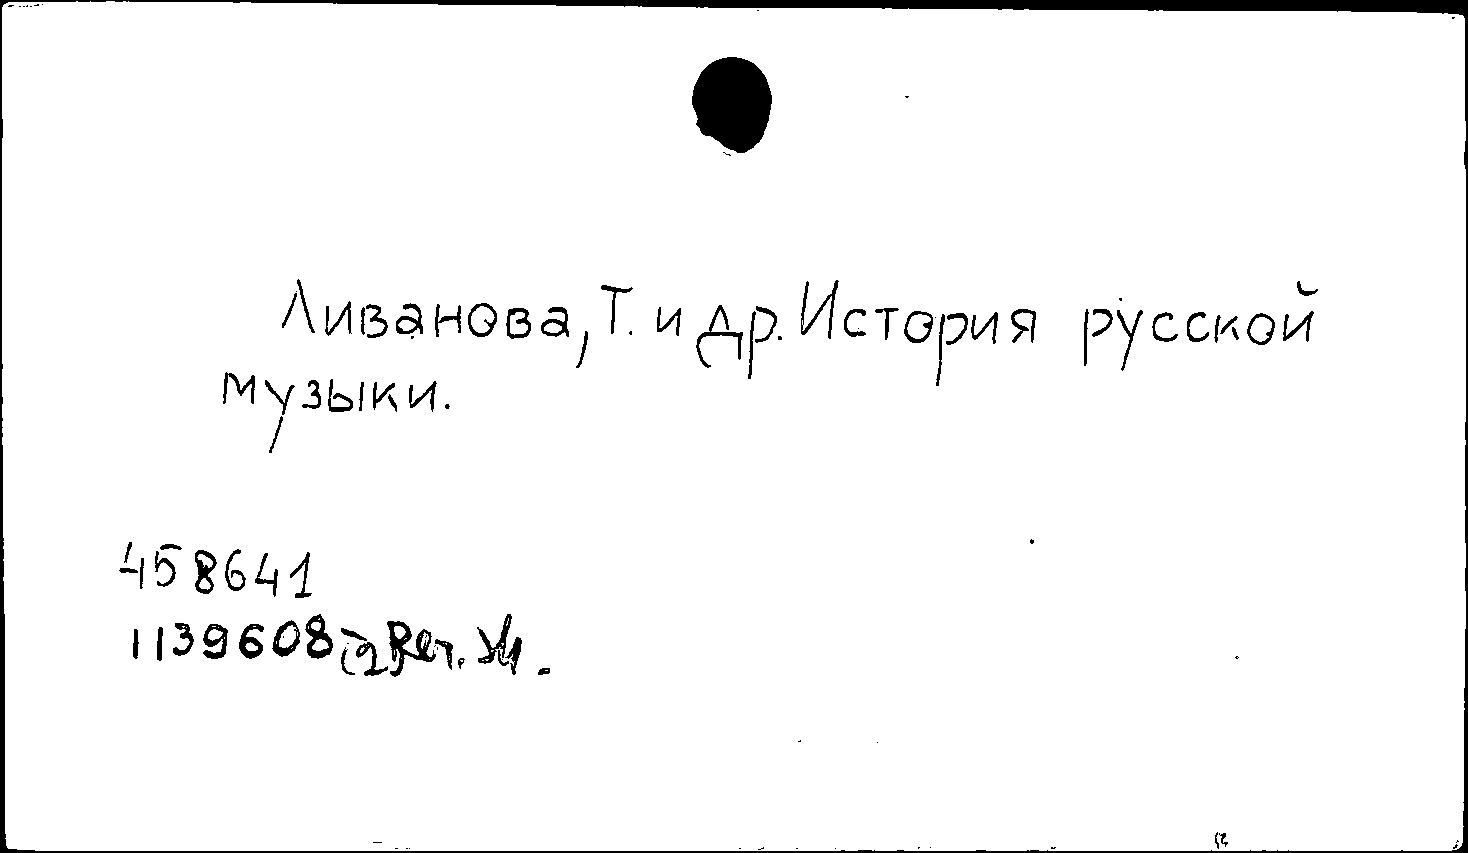 Ливанова, Т. и др. История русской
музыки.
458641
1139608